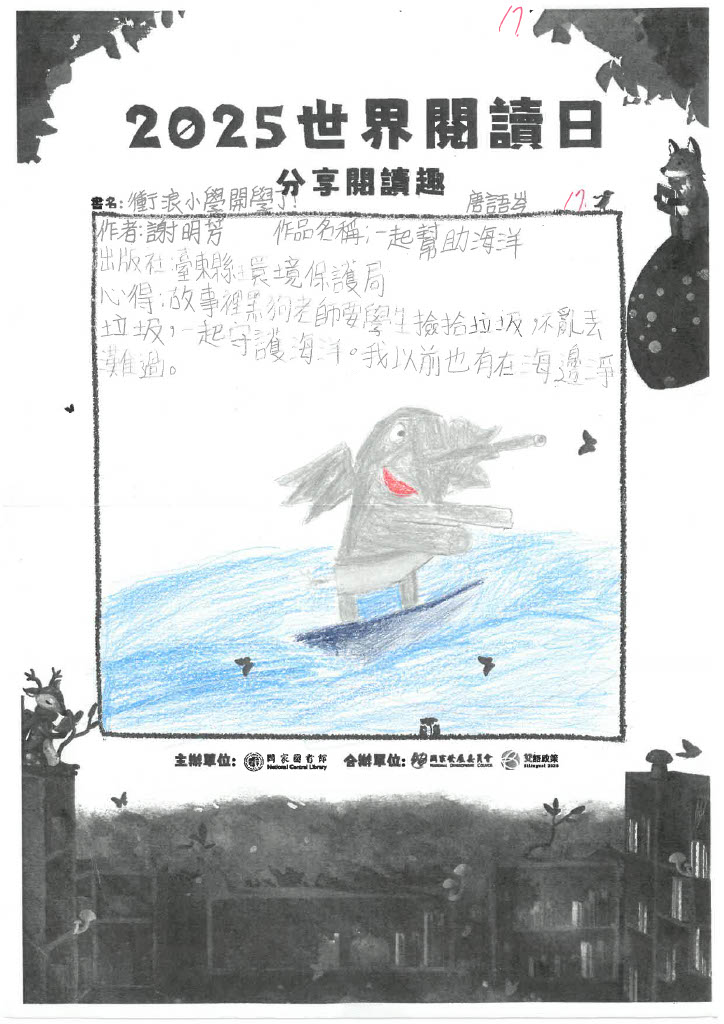 17.
2025世界閱讀日
分享閱讀趣
書名:衝浪小學開學了! 唐語岑 17.
作者:謝明芳 作品名稱:一起幫助海洋
出版社:臺東縣環境保護局
心得:故事裡黑狗老師要學生撿拾垃圾,不亂丟
垃圾,一起守護海洋。我以前也有在海邊淨
灘過。
主辦單位: 國家圖書館 National Central Library 合辦單位: 國家發展委員會 NATIONAL DEVELOPMENT COUNCIL 雙語政策 Bilingual 2030